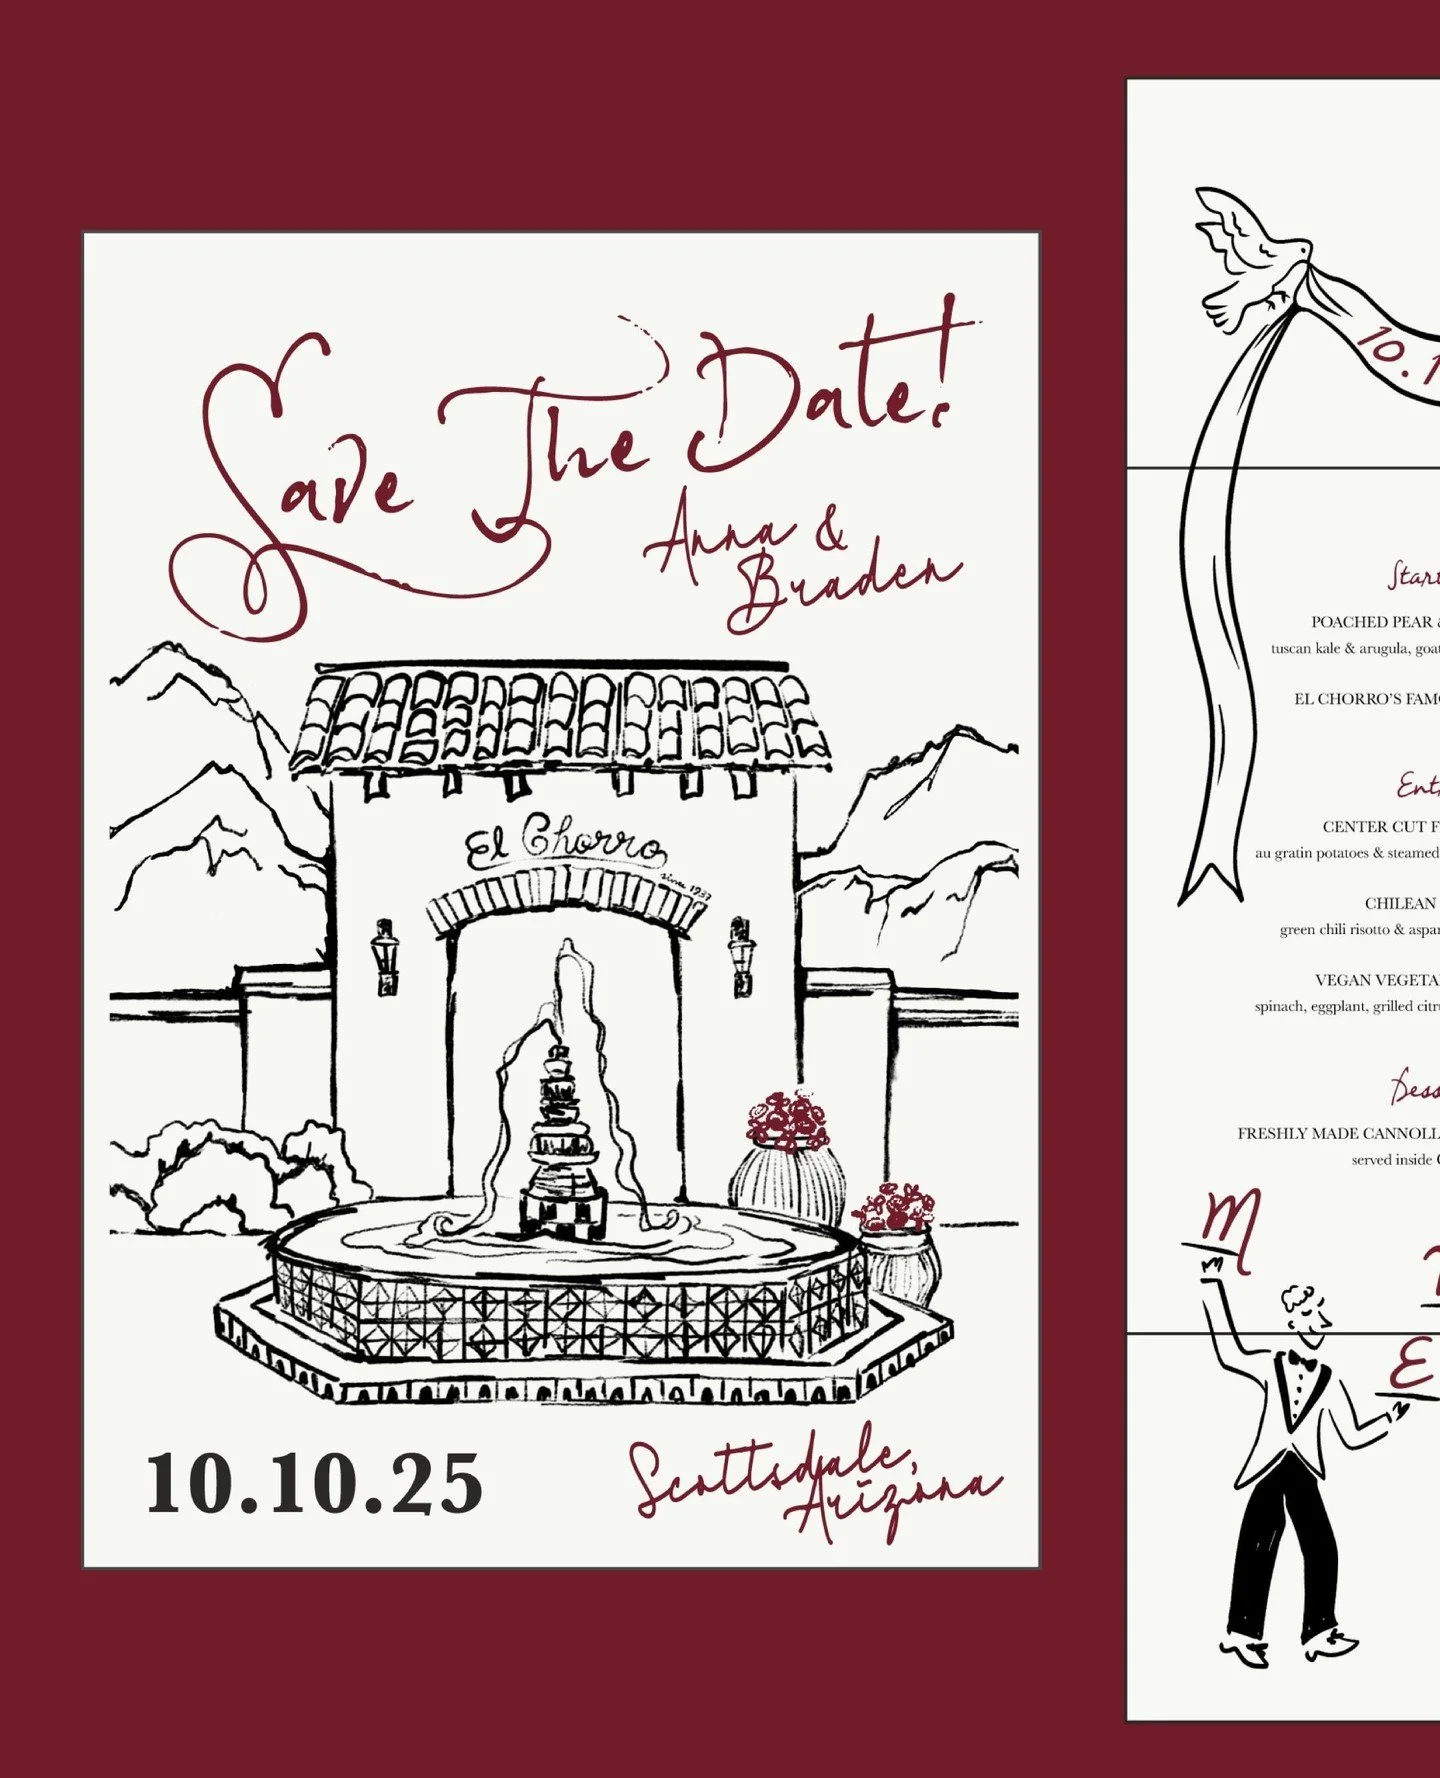 Save The Date!
Anna &
Braden
El Chorro
since 1937
10.10.25
Scottsdale,
Arizona
10.1
Start
POACHED PEAR &
tuscan kale & arugula, goat
EL CHORRO'S FAMO
Ent
CENTER CUT F
au gratin potatoes & steamed
CHILEAN
green chili risotto & aspar
VEGAN VEGETA
spinach, eggplant, grilled citru
Dess
FRESHLY MADE CANNOLI
served inside
M
E